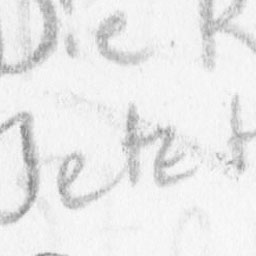 Die
Jetzt